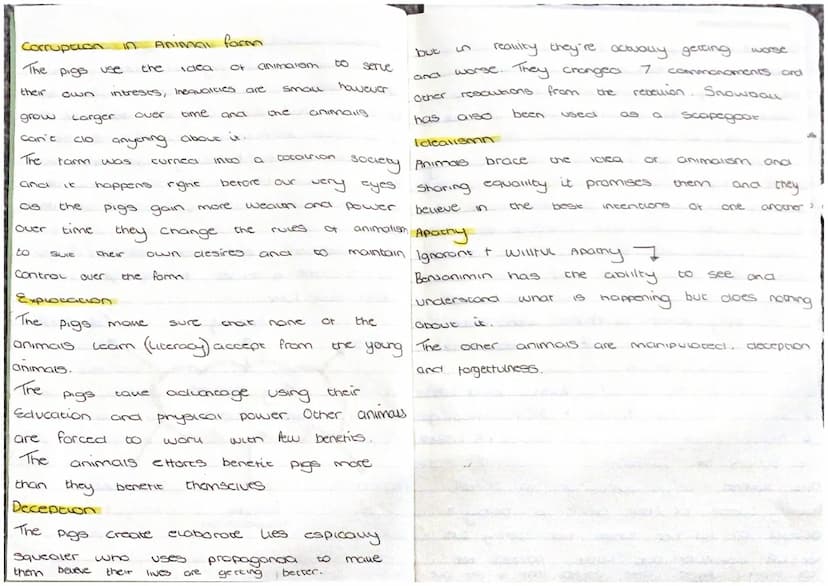 Corruption in Animal farm
The pigs use the idea of animalism to serve
their own intreses, inequalities are small however
grow larger over time and the animals
can't do anything about it.
The farm was turned into a totalitarian society
and it happens right before our very eyes
as the pigs gain more wealth and power
over time they change the rules of animalism
to suit their own desires and to maintain
control over the farm
Exploitation
The pigs make sure that none of the
animals learn (literacy) accept from the young
animals.
The pigs take advantage using their
Education and physical power. Other animals
are forced to work with few benefits.
The animals efforts benefit pigs more
than they benefit themselves
Deception
The pigs create elaborate lies espically
squealer who uses propaganda to make
them believe their lives are getting better.
but in reality they're actually getting worse
and worse. They changed 7 commandments and
other resolutions from the rebellion. Snowball
has also been used as a scapegoat
Idealismn
Animals brace the idea of animalism and
sharing equality it promises them and they
believe in the best intentions of one another
Apathy
Ignorant + Willful Apathy
Benjanimin has the ability to see and
understand what is happening but does nothing
about it.
The other animals are manipulated. deception
and forgetfulness.